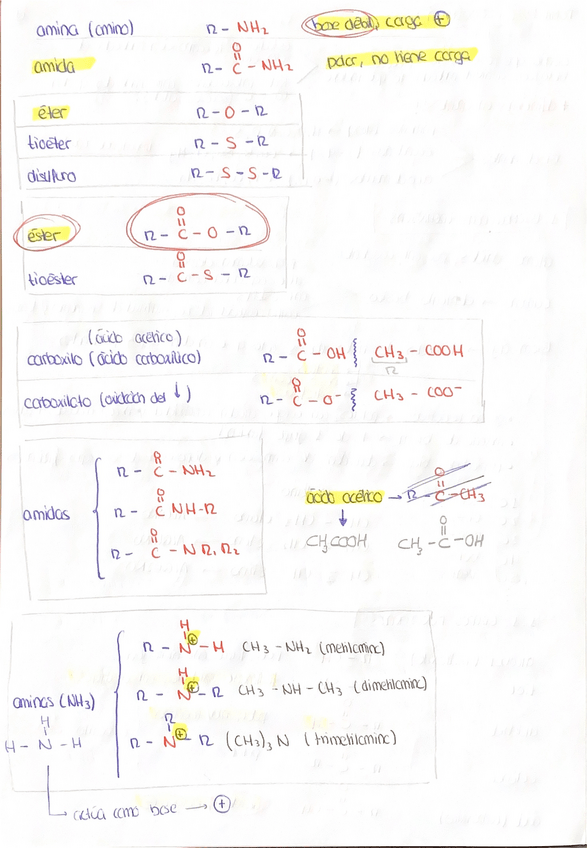 amina (amino) R - NH₂ base débil, carga ⊕
O
||
amida R - C - NH₂ polar, no tiene carga
éter R - O - R
tioéter R - S - R
disulfuro R - S - S - R
O
||
éster R - C - O - R
O
||
tioéster R - C - S - R
(ácido acético)
O
||
carboxilo (ácido carboxílico) R - C - OH CH₃ - COOH
R
O
||
carboxilato (oxidación del ↓) R - C - O⁻ CH₃ - COO⁻
O
||
R - C - NH₂
O
||
amidas R - C NH - R
O
||
R - C - N R₁ R₂
O
||
ácido acético → R - C - CH₃
↓
CH₃COOH
O
||
CH₃ - C - OH
H
|
R - N⊕ - H CH₃ - NH₂ (metilamina)
H
|
aminas (NH₃) R - N⊕ - R CH₃ - NH - CH₃ (dimetilamina)
R
|
R - N⊕ R (CH₃)₃ N (trimetilamina)
H
|
H - N - H
actúa como base → ⊕